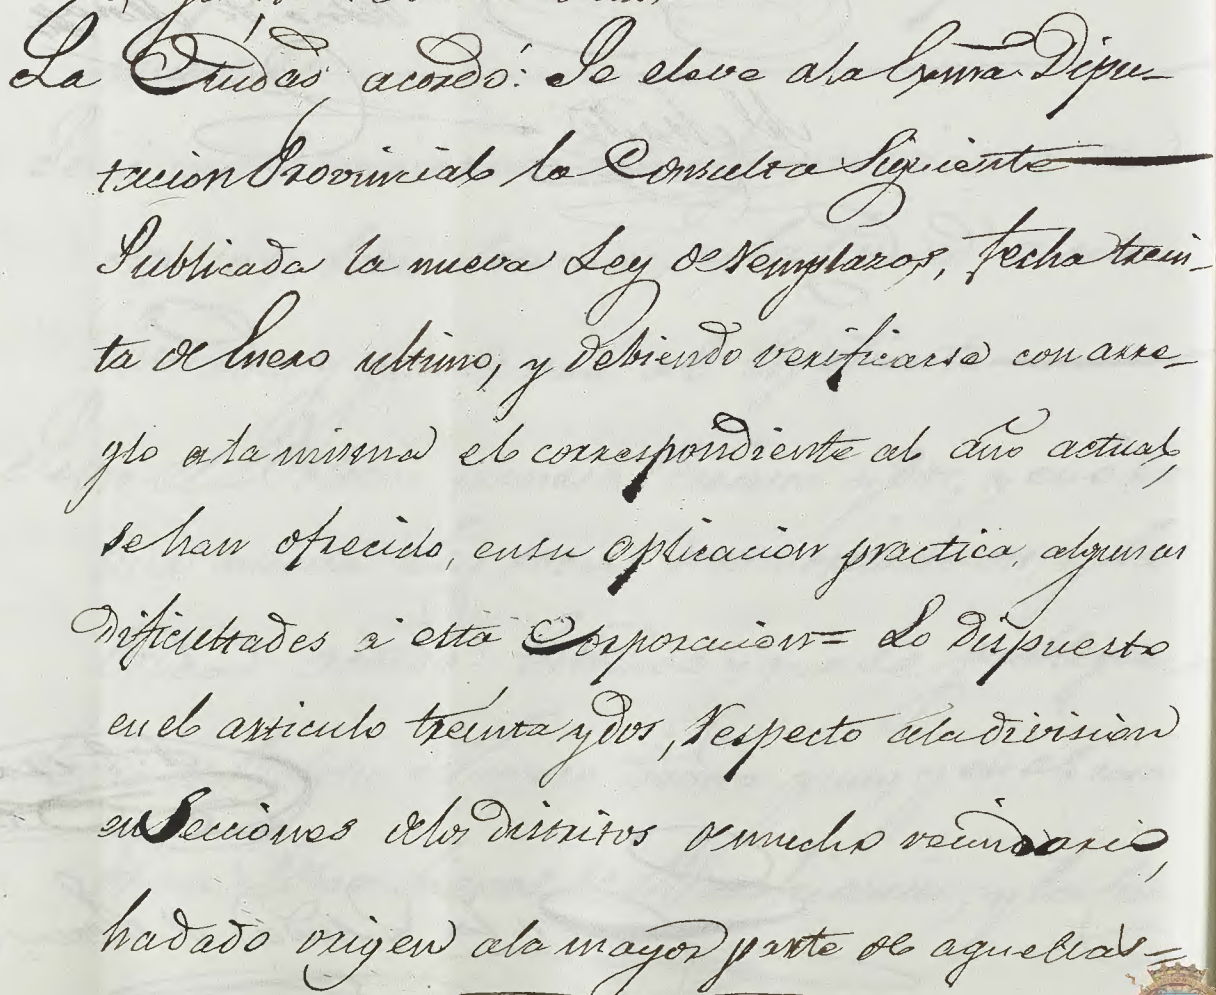 La Ciudad, acordó: Se eleve a la Exma. Dipu-
tacion Provincial la Consulta Siguiente
Publicada la nueva Ley de Remplazos, fecha trein-
ta de Enero ultimo, y debiendo verificarse con arre-
glo a la misma el correspondiente al año actual,
se han ofrecido, en su aplicacion practica, algunas
dificultades á esta Corporacion= Lo dispuesto
en el articulo treinta y dos, respecto a la division
en Secciones de los distritos de mucho vecindario,
ha dado origen a la mayor parte de aquellas=